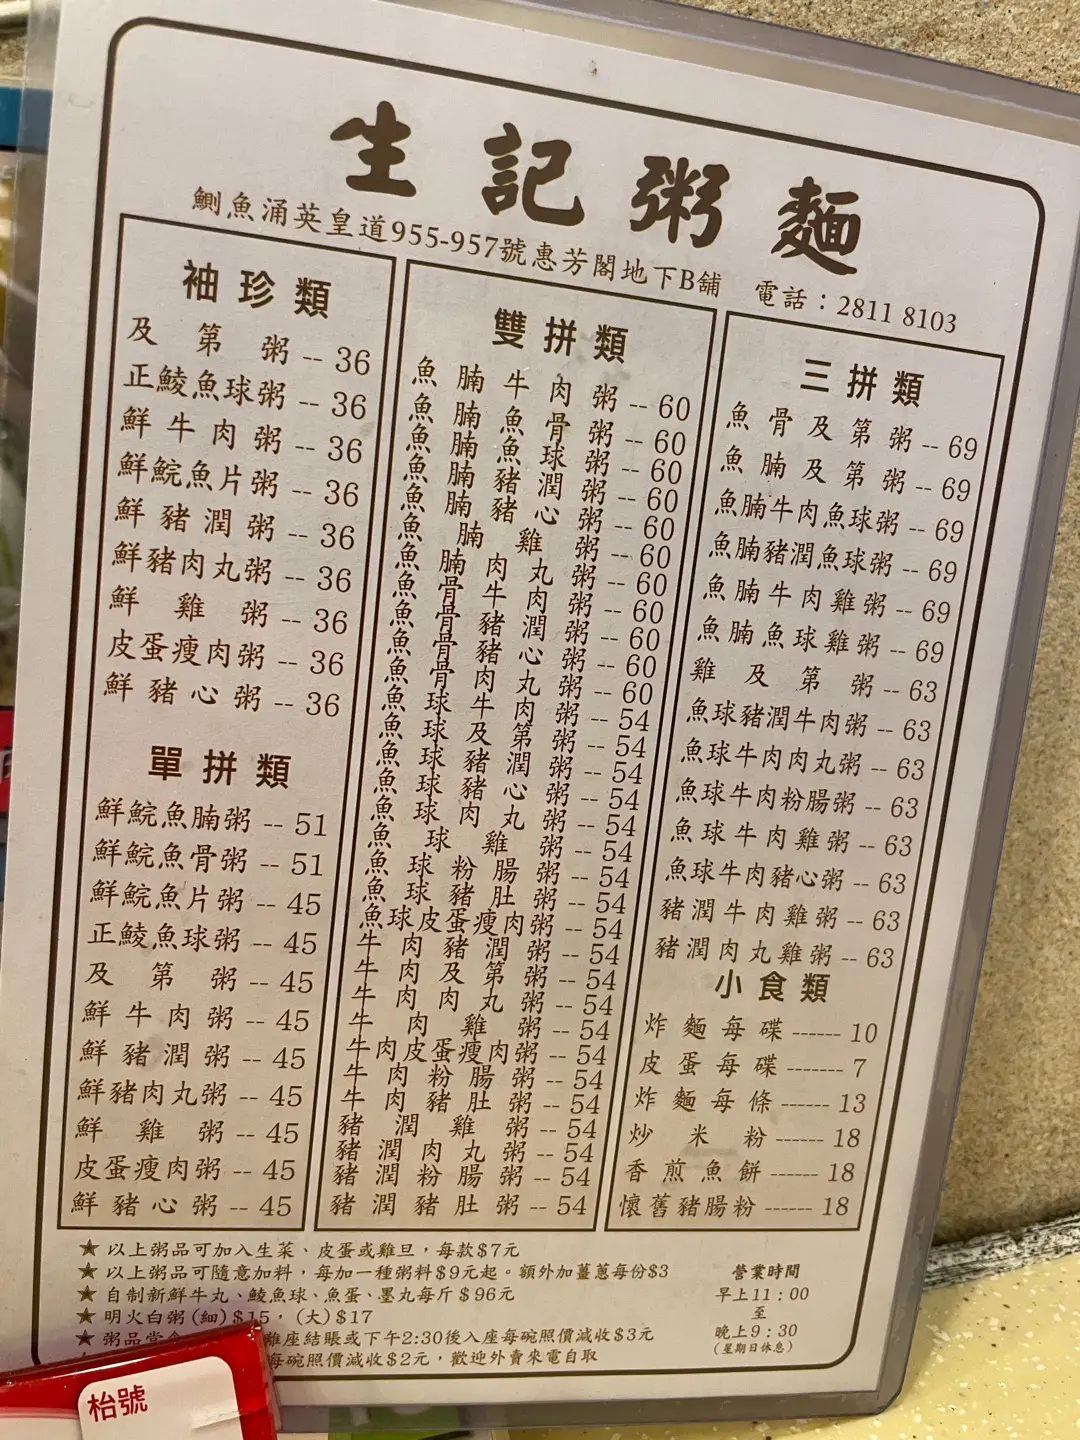 生記粥麵
鰂魚涌英皇道955-957號惠芳閣地下B舖 電話：2811 8103
袖珍類
及第粥 -- 36
正鯪魚球粥 -- 36
鮮牛肉粥 -- 36
鮮鯇魚片粥 -- 36
鮮豬潤粥 -- 36
鮮豬肉丸粥 -- 36
鮮雞粥 -- 36
皮蛋瘦肉粥 -- 36
鮮豬心粥 -- 36
單拼類
鮮鯇魚腩粥 -- 51
鮮鯇魚骨粥 -- 51
鮮鯇魚片粥 -- 45
正鯪魚球粥 -- 45
及第粥 -- 45
鮮牛肉粥 -- 45
鮮豬潤粥 -- 45
鮮豬肉丸粥 -- 45
鮮雞粥 -- 45
皮蛋瘦肉粥 -- 45
鮮豬心粥 -- 45
雙拼類
魚腩牛肉粥 -- 60
魚腩魚骨粥 -- 60
魚腩魚球粥 -- 60
魚腩豬潤粥 -- 60
魚腩豬心粥 -- 60
魚腩雞粥 -- 60
魚腩肉丸粥 -- 60
魚骨牛肉粥 -- 60
魚骨豬潤粥 -- 60
魚骨豬心粥 -- 60
魚骨肉丸粥 -- 60
魚球牛肉粥 -- 54
魚球及第粥 -- 54
魚球豬潤粥 -- 54
魚球豬心粥 -- 54
魚球肉丸粥 -- 54
魚球雞粥 -- 54
魚球粉腸粥 -- 54
魚球豬肚粥 -- 54
魚球皮蛋瘦肉粥 -- 54
牛肉豬潤粥 -- 54
牛肉及第粥 -- 54
牛肉肉丸粥 -- 54
牛肉雞粥 -- 54
牛肉皮蛋瘦肉粥 -- 54
牛肉粉腸粥 -- 54
牛肉豬肚粥 -- 54
豬潤雞粥 -- 54
豬潤肉丸粥 -- 54
豬潤粉腸粥 -- 54
豬潤豬肚粥 -- 54
三拼類
魚骨及第粥 -- 69
魚腩及第粥 -- 69
魚腩牛肉魚球粥 -- 69
魚腩豬潤魚球粥 -- 69
魚腩牛肉雞粥 -- 69
魚腩魚球雞粥 -- 69
雞及第粥 -- 63
魚球豬潤牛肉粥 -- 63
魚球牛肉肉丸粥 -- 63
魚球牛肉粉腸粥 -- 63
魚球牛肉雞粥 -- 63
魚球牛肉豬心粥 -- 63
豬潤牛肉雞粥 -- 63
豬潤肉丸雞粥 -- 63
小食類
炸麵每碟 ------ 10
皮蛋每碟 ------- 7
炸麵每條 ------ 13
炒米粉 ------ 18
香煎魚餅 ------ 18
懷舊豬腸粉 ------ 18
★ 以上粥品可加入生菜、皮蛋或雞旦，每款$7元
★ 以上粥品可隨意加料，每加一種粥料$9元起。額外加薑蔥每份$3
★ 自制新鮮牛丸、鯪魚球、魚蛋、墨丸每斤$96元
★ 明火白粥(細)$15，(大)$17
★ 粥品堂食 離座結賬或下午2:30後入座每碗照價減收$3元
每碗照價減收$2元，歡迎外賣來電自取
營業時間
早上11：00
至
晚上9：30
(星期日休息)
枱號